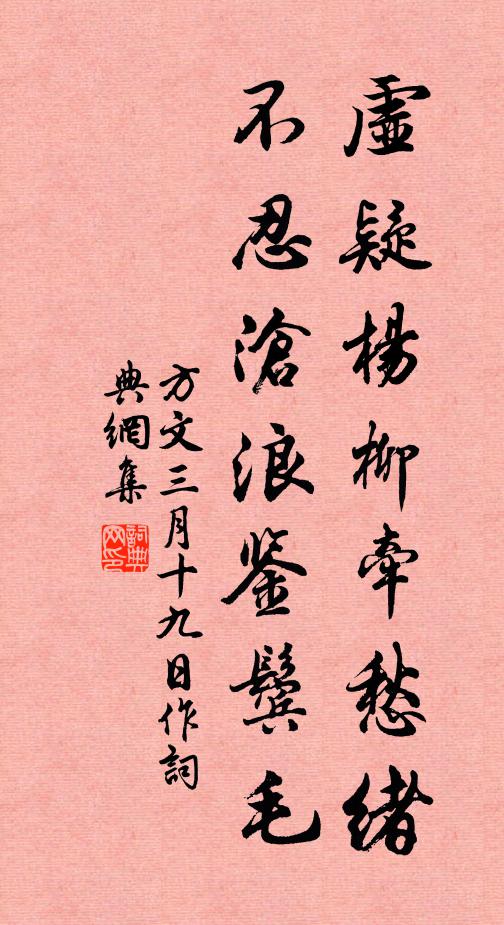 虛疑楊柳牽愁緒
不忍滄浪鉴鬓毛
方文三月十九日作詞
典網集
詞典
网印